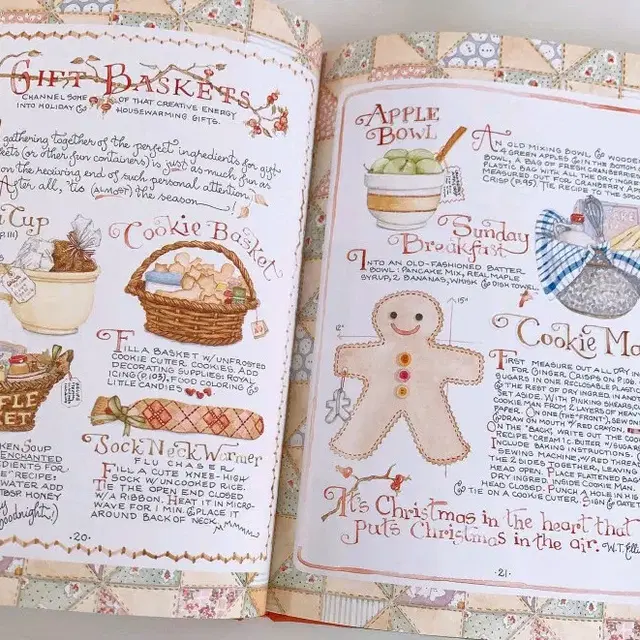 GIFT BASKETS
CHANNEL SOME OF THAT CREATIVE ENERGY
INTO HOLIDAY & HOUSEWARMING GIFTS.
gathering together of the perfect ingredients for gift
(or other fun containers) is just as much fun as
on the receiving end of such personal attention.
After all, 'tis (ALMOST) the season!
Cup
111)
Cookie Basket
FILL A BASKET W/ UNFROSTED
COOKIE CUTTER COOKIES. ADD
DECORATING SUPPLIES: ROYAL
ICING (P.193), FOOD COLORING &
LITTLE CANDIES
KEN SOUP
ENCHANTED
DIENTS FOR
RECIPE:
WATER ADD
TBSP. HONEY
Goodnight!)
SOCK NECK WARMER
FLU CHASER
FILL A CUTE KNEE-HIGH
SOCK W/ UNCOOKED RICE.
TIE THE OPEN END CLOSED
W/ A RIBBON. HEAT IT IN MICRO-
WAVE FOR 1 MIN. & PLACE IT
AROUND BACK OF NECK.
·20·
APPLE
BOWL
AN OLD MIXING BOWL & WOODEN
4 GREEN APPLES & IN THE BOTTOM
BOWL, A BAG OF FRESH CRANBERRIES
PLASTIC BAG WITH ALL THE DRY INGRE
MEASURED OUT FOR CRANBERRY APP
CRISP (P.95). TIE RECIPE TO THE SPOON
Sunday
Breakfast
INTO AN OLD-FASHIONED BATTER
BOWL: PANCAKE MIX, REAL MAPLE
SYRUP, 2 BANANAS, WHISK & DISH TOWEL.
12"
15"
Cookie Ma
FIRST MEASURE OUT ALL DRY IN
FOR GINGER CRISPS ON P.106.
SUGARS IN ONE RECLOSABLE PLASTIC
& THE REST OF DRY INGRED. IN ANOTHE
SET ASIDE. WITH PINKING SHEARS
COOKIE MAN FROM 2 LAYERS OF HEAVY
PAPER. ON ONE (THE "FRONT"), SEW ON
& DRAW ON MOUTH W/ RED CRAYON.
ON THE "BACK," WRITE OUT THE COOK
RECIPE "CREAM 1 C. BUTTER W/ SUGARS
INCLUDE BAKING INSTRUCTIONS.
SEWING MACHINE, W/ RED THREAD
THE 2 SIDES TOGETHER, LEAVING
HEAD OPEN. PLACE FLATTENED BAGS
DRY INGRED. INSIDE COOKIE MAN.
HEAD CLOSED. PUNCH A HOLE IN HIS
& TIE ON A COOKIE CUTTER. SIGN & DATE
It's Christmas in the heart that
puts Christmas in the air. W.T. Elli
·21·